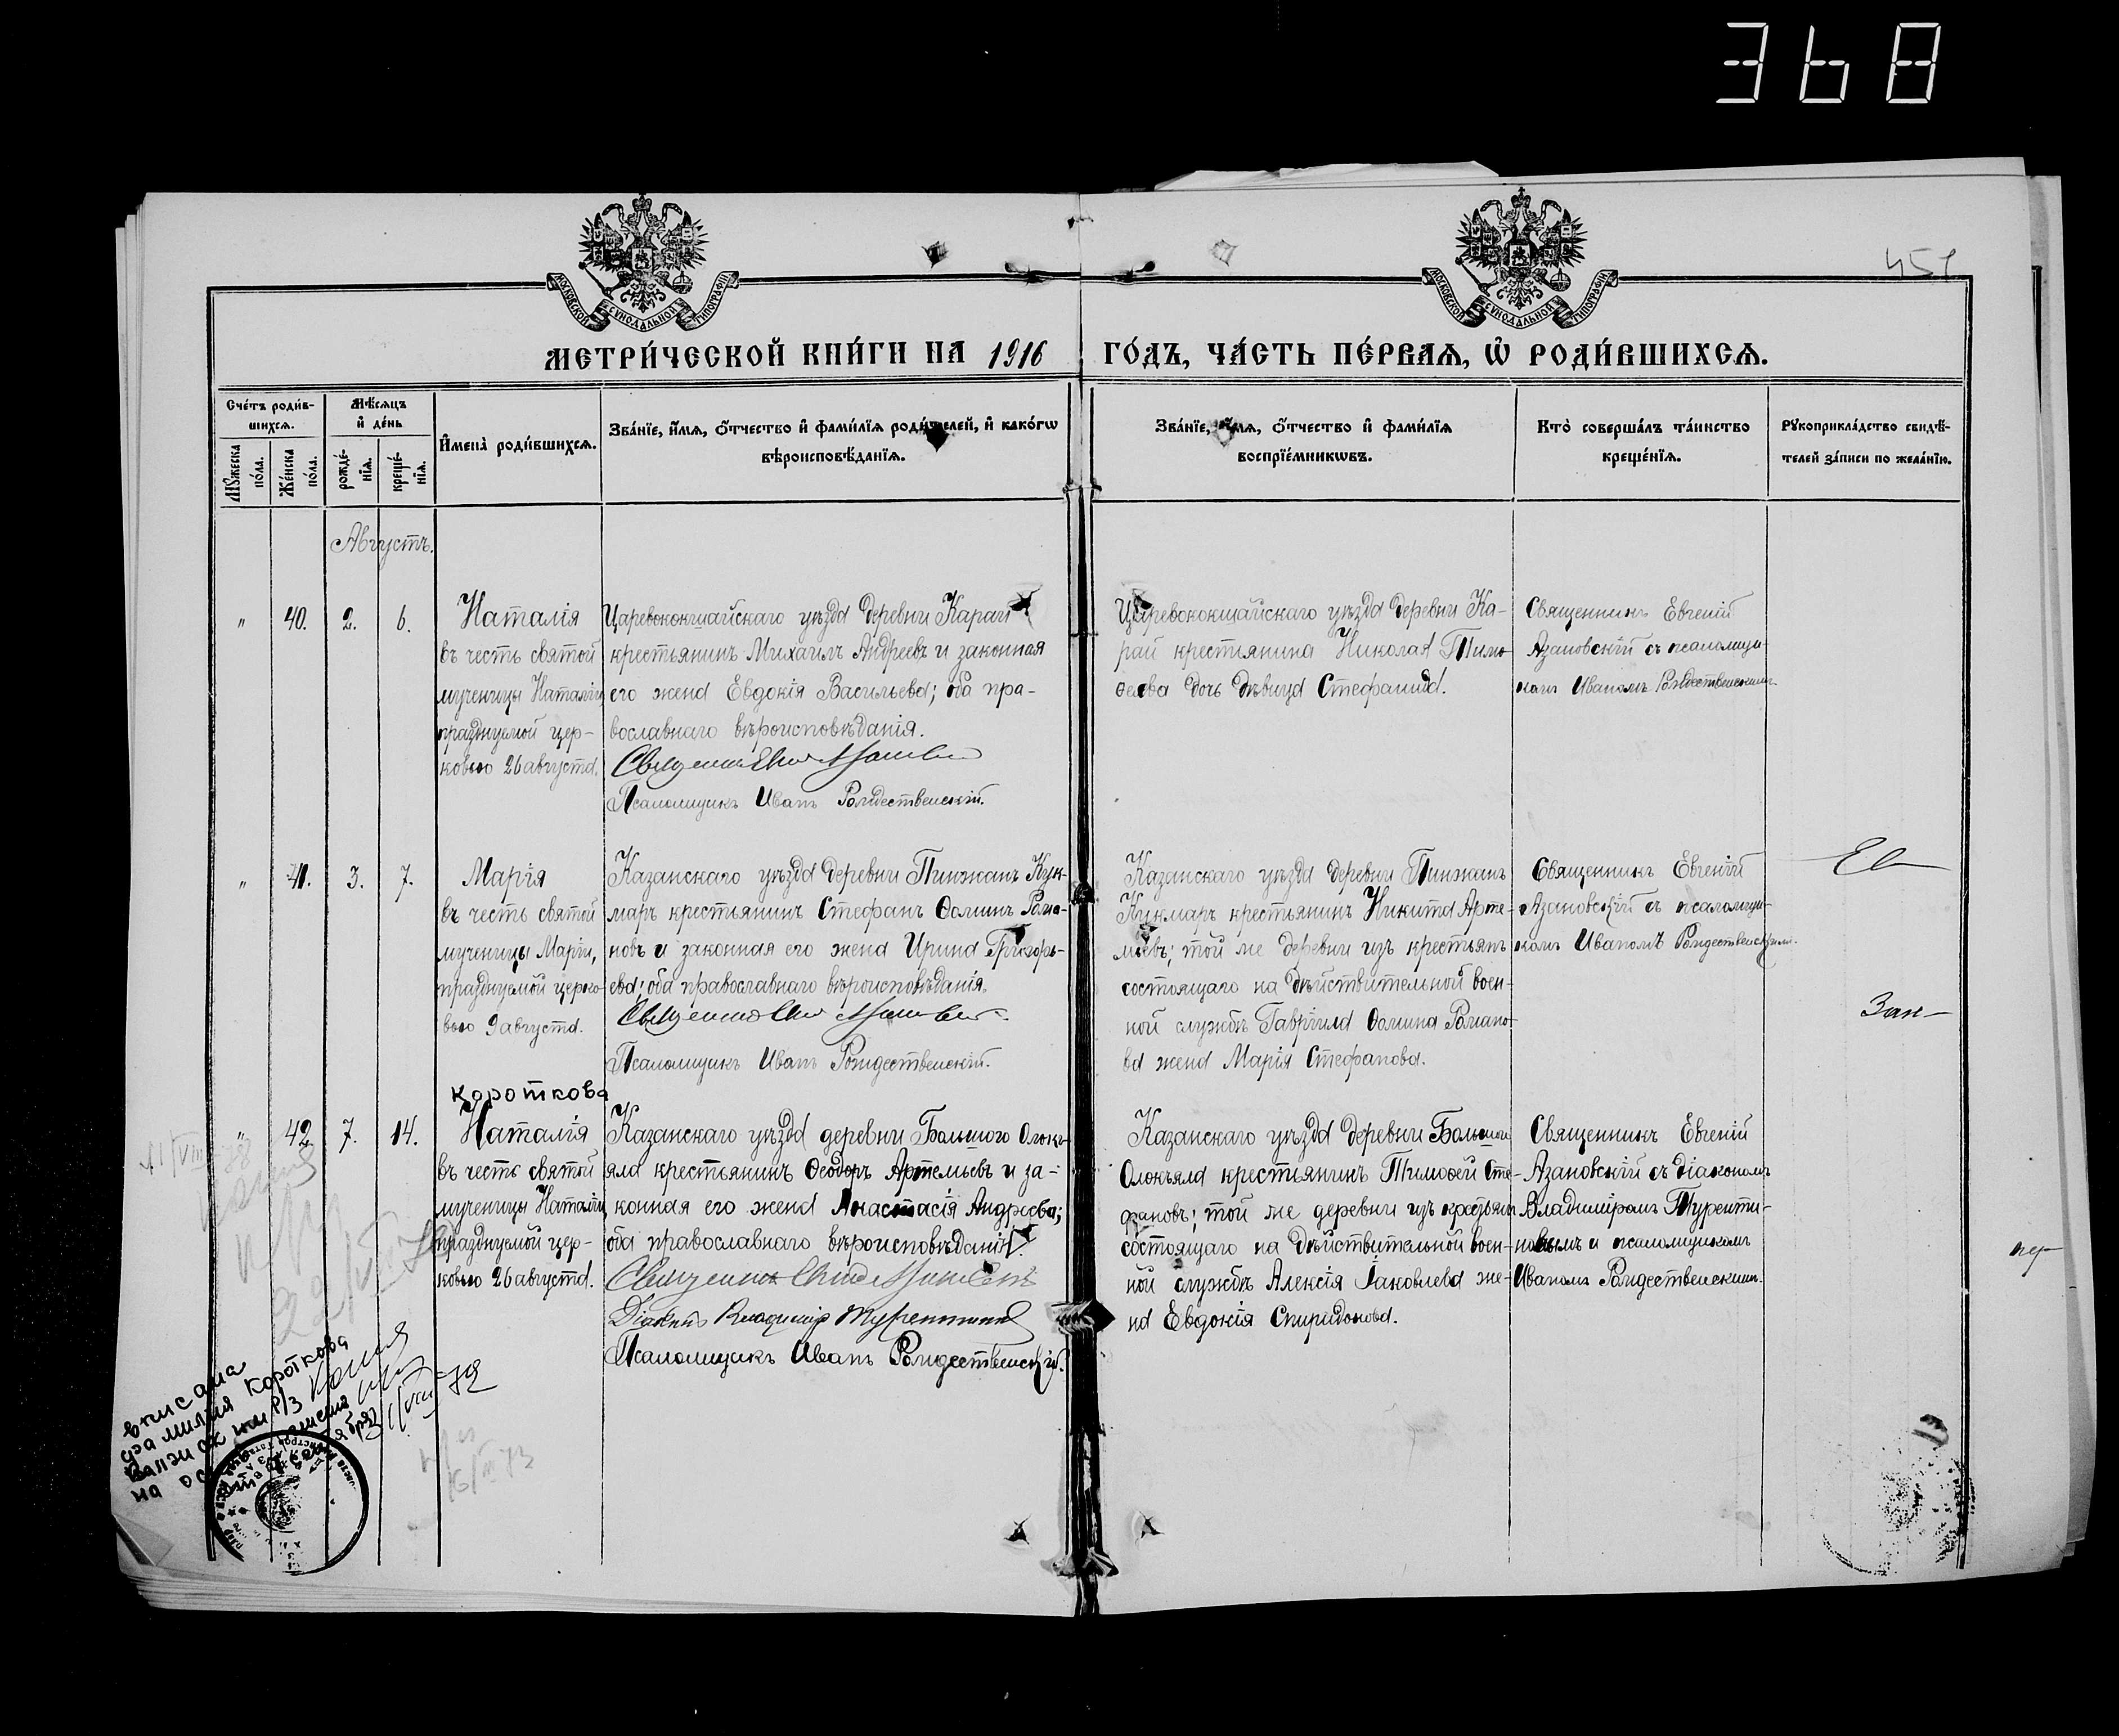 368
451
МОСКОВСКОЙ СѴНОДАЛЬНОЙ ТИПОГРАФІИ
МОСКОВСКОЙ СѴНОДАЛЬНОЙ ТИПОГРАФІИ
МЕТРИ́ЧЕСКОЙ КНИ́ГИ НА 1916 ГО́ДЪ, ЧА́СТЬ ПЕ́РВАѦ, Ѡ҆ РОДИ́ВШИХСѦ.
Сче́тъ роди́в-
шихсѧ.
Мꙋ́жеска по́ла.
Же́нска по́ла.
Мѣ́сѧцъ
и҆ де́нь
рожде́-
нїѧ.
креще́-
нїѧ.
И҆мена̀ роди́вшихсѧ.
Зва́нїе, и҆́мѧ, ѻ҆́тчество и҆ фами́лїѧ роди́телей, и҆ како́гѡ
вѣроисповѣ́данїѧ.
Зва́нїе, и҆́мѧ, ѻ҆́тчество и҆ фами́лїѧ
воспрїе́мникѡвъ.
Кто̀ соверша́лъ та́инство
креще́нїѧ.
Рꙋкоприкла́дство свидѣ́-
телей за́писи по жела́нїю.
Августъ.
" 40. 2. 6.
Наталія
въ честь святой
мученицы Наталіи,
празднуемой цер-
ковью 26 августа.
Царевококшайскаго уѣзда деревни Карай
крестьянинъ Михаилъ Андреевъ и законная
его жена Евдокія Васильева; оба пра-
вославнаго вѣроисповѣданія.
Псаломщикъ Иванъ Рождественскій.
Царевококшайскаго уѣзда деревни Ка-
рай крестьянина Николая Тимо-
ѳеева дочь дѣвица Стефанида.
Священникъ Евгеній
Азановскій съ псаломщи-
комъ Иваномъ Рождественскимъ
" 41. 3. 7.
Марія
въ честь святой
мученицы Маріи,
празднуемой церко-
вью 9 августа.
Казанскаго уѣзда деревни Пинжанъ Кук-
маръ крестьянинъ Стефанъ Ѳоминъ Рома-
новъ и законная его жена Ирина Григорь-
ева; оба православнаго вѣроисповѣданія.
Псаломщикъ Иванъ Рождественскій.
Казанскаго уѣзда деревни Пинжанъ
Кукмаръ крестьянинъ Никита Арте-
мьевъ; той же деревни изъ крестьянъ
состоящаго на дѣйствительной воен-
ной службѣ Гавріила Ѳомина Романо-
ва жена Марія Стефанова.
Священникъ Евгеній
Азановскій съ псаломщи-
комъ Иваномъ Рождественскимъ.
Зап-
Короткова
" 42 7. 14.
Наталія
въ честь святой
мученицы Наталіи,
празднуемой цер-
ковью 26 августа.
Казанскаго уѣзда деревни Большого Олокъ-
яла крестьянинъ Ѳеодоръ Артемьевъ и за-
конная его жена Анастасія Андреева;
оба православнаго вѣроисповѣданія.
Діаконъ Владиміръ
Псаломщикъ Иванъ Рождественскій.
Казанскаго уѣзда деревни Большого
Олокъяла крестьянинъ Тимоѳей Сте-
фановъ; той же деревни изъ крестьянъ
состоящаго на дѣйствительной воен-
ной службѣ Алексія Іаковлева же-
на Евдокія Спиридонова.
Священникъ Евгеній
Азановскій съ діакономъ
Владиміромъ Туренти-
новымъ и псаломщикомъ
Иваномъ Рождественскимъ.
вписана
фамилия Короткова
на